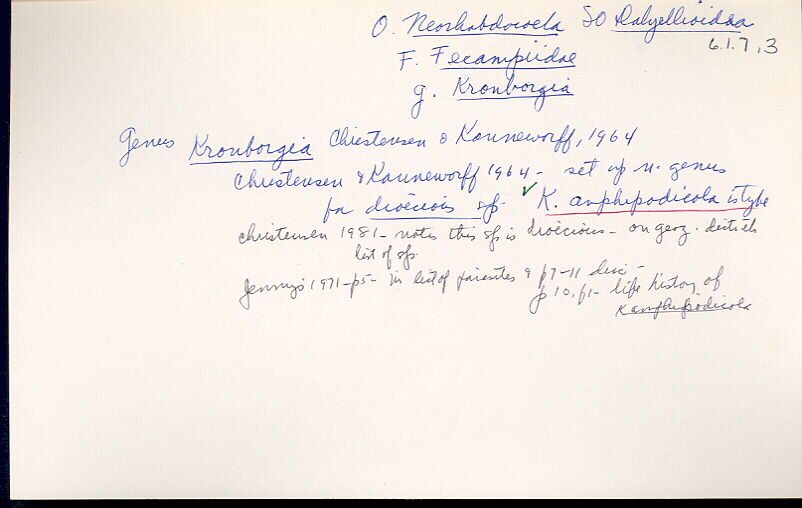 O. Neorhabdocoela SO Dalyellioidea
6.1.7,3
F. Fecampiidae
g. Kronborgia
Genus Kronborgia Christensen & Kanneworff, 1964
Christensen & Kanneworff 1964 - set up n. genus
for dioecious sp. ✓ K. amphipodicola is type
Christensen 1981 - notes this sp is dioecious - on geog. distrib
list of sp.
Jennings 1971 - p5 - in list of parasites & p7-11 disc -
p10, p1 - life history of
K amphipodicola